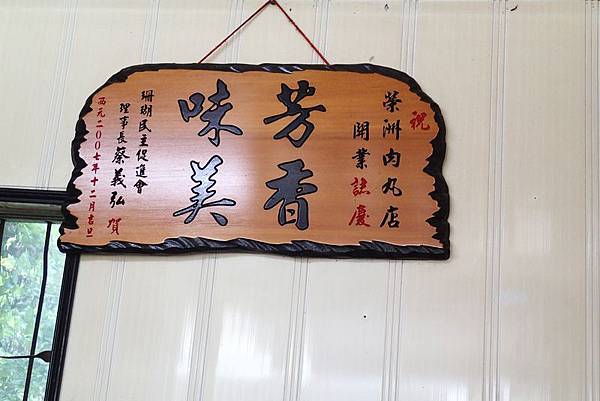 祝
榮洲肉丸店
開業誌慶
芳香
味美
珊瑚民主促進會
理事長蔡義弘 賀
西元二00七年十二月吉旦